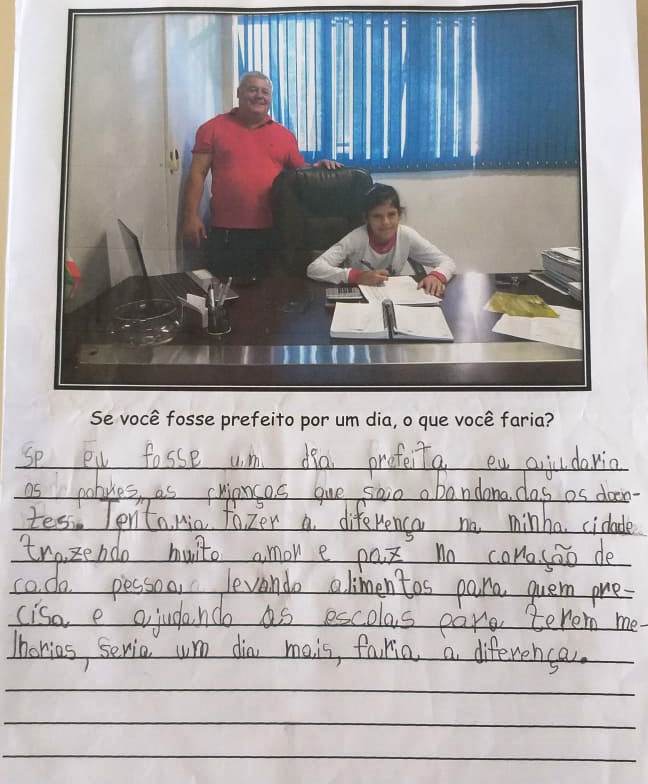 Se você fosse prefeito por um dia, o que você faria?
Se eu fosse um dia prefeita eu ajudaria
os pobres, as crianças que saio abandonadas os doen-
tes. Tentaria fazer a diferença na minha cidade
trazendo muito amor e paz no coração de
cada pessoa, levando alimentos para quem pre-
cisa e ajudando as escolas para terem me-
lhorias, seria um dia mais, faria a diferença.